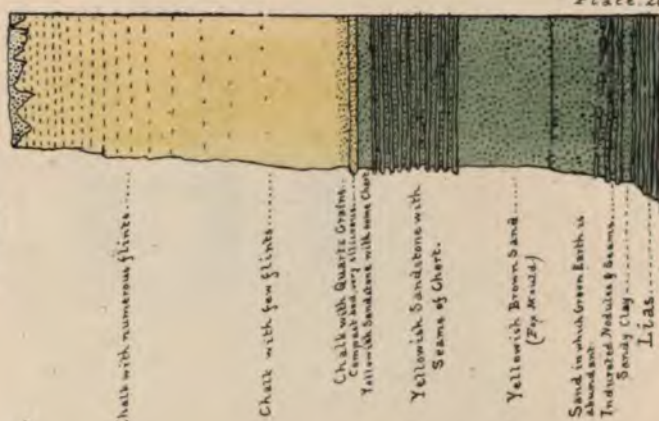 Plate.
Chalk with numerous flints
Chalk with few flints
Chalk with Quartz Grains
Compact bed, very siliceous
Yellowish Sandstone with some Chert
Yellowish Sandstone with
Seams of Chert.
Yellowish Brown Sand
(Fox Mould)
Sand in which Green Earth is
abundant
Indurated Nodules & Seams
Sandy Clay
Lias